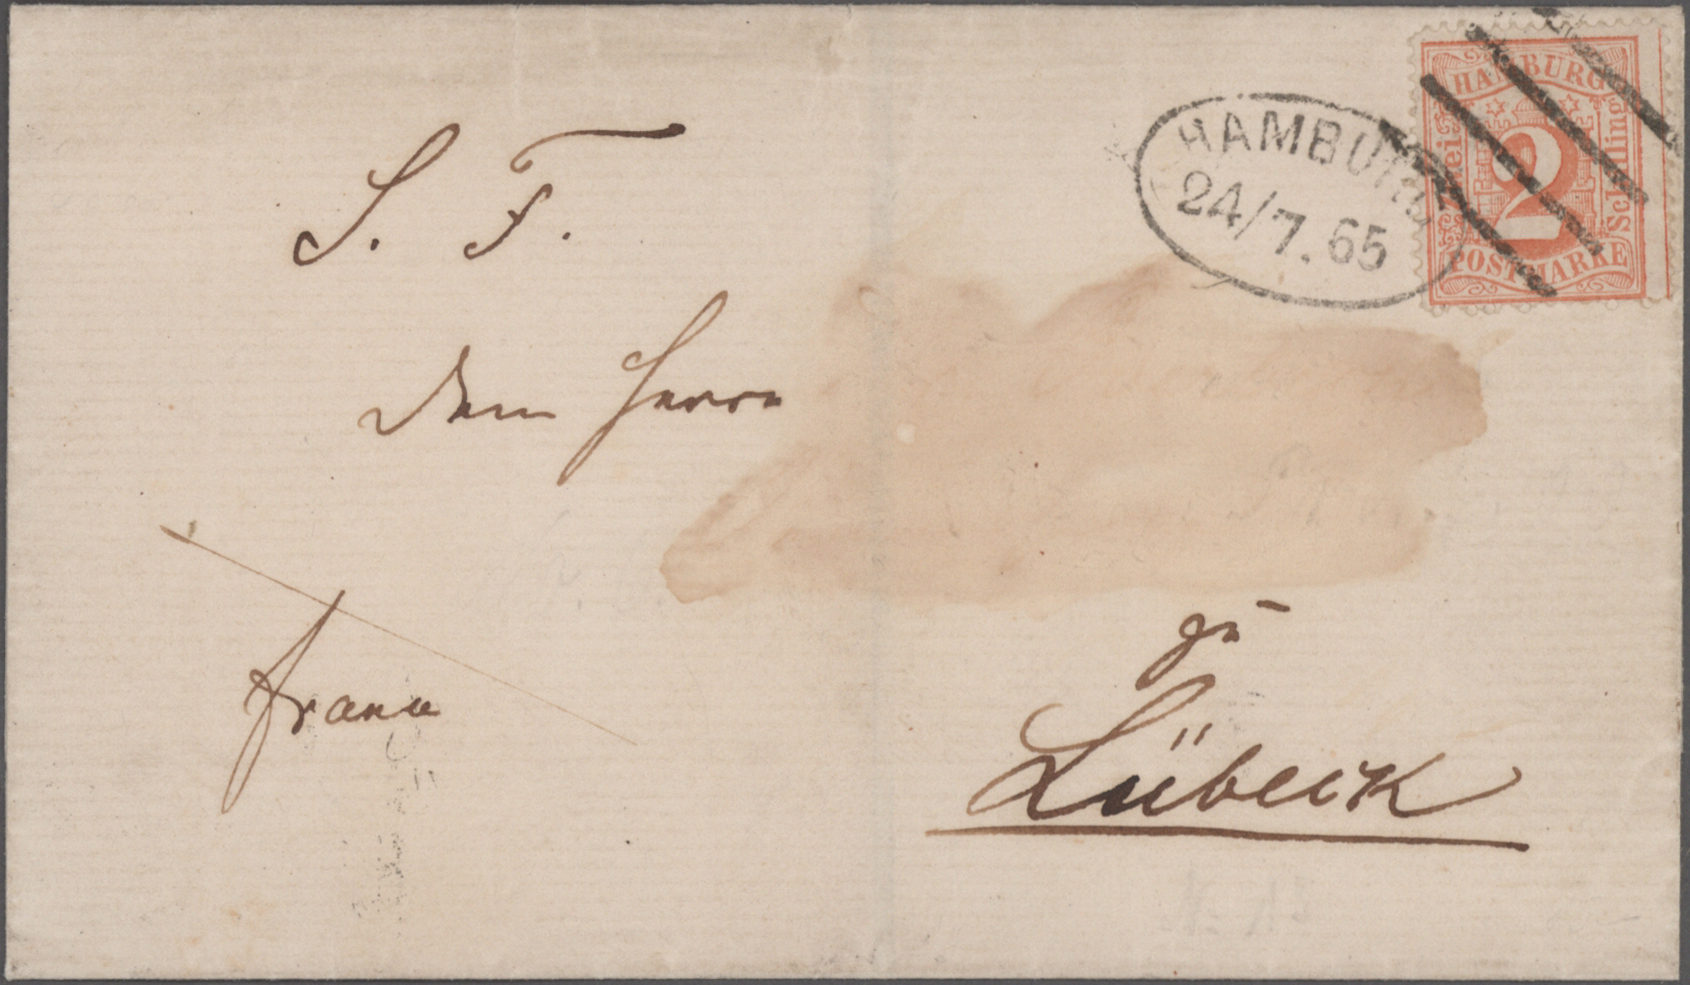 HAMBURG
Zwei Schilling
2
POSTMARKE
HAMBURG
24/7.65
S. T.
Dem Herrn
zu
Lübeck
franco